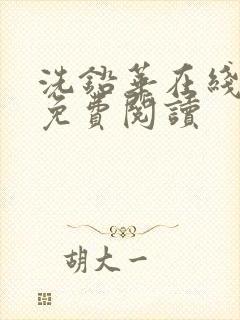 洗鉛華在綫
免費閱讀
胡大一